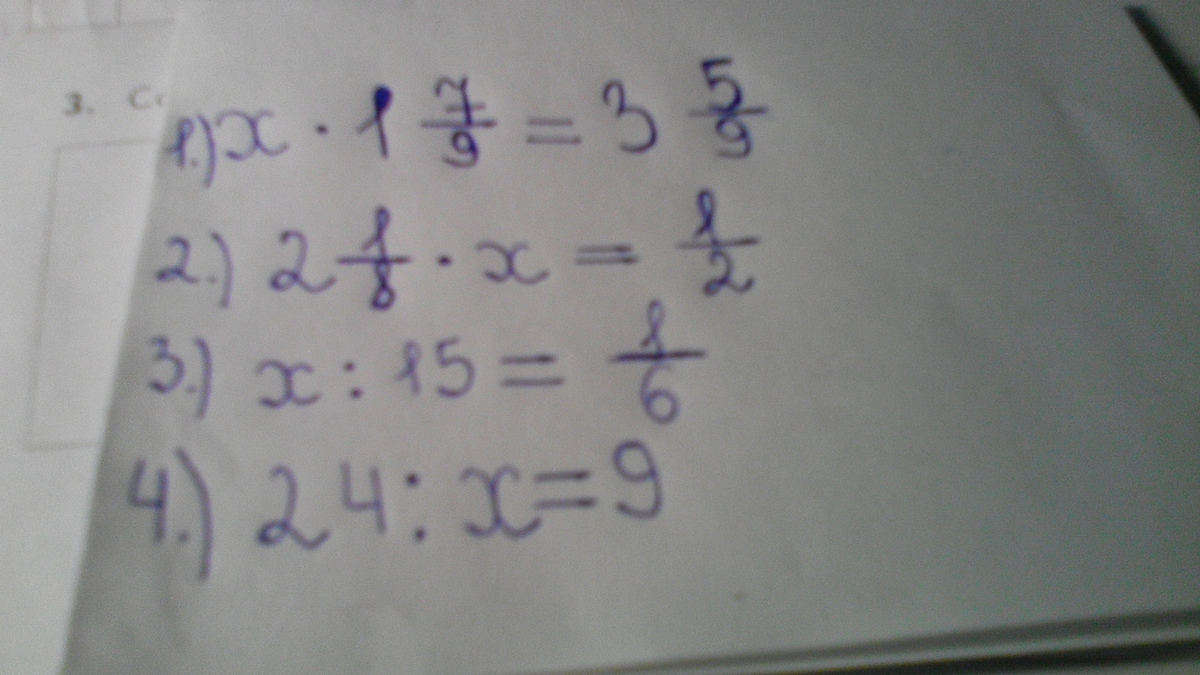 3.
1.) x · 1 7/9 = 3 5/9
2.) 2 1/8 · x = 1/2
3.) x : 15 = 1/6
4.) 24 : x = 9